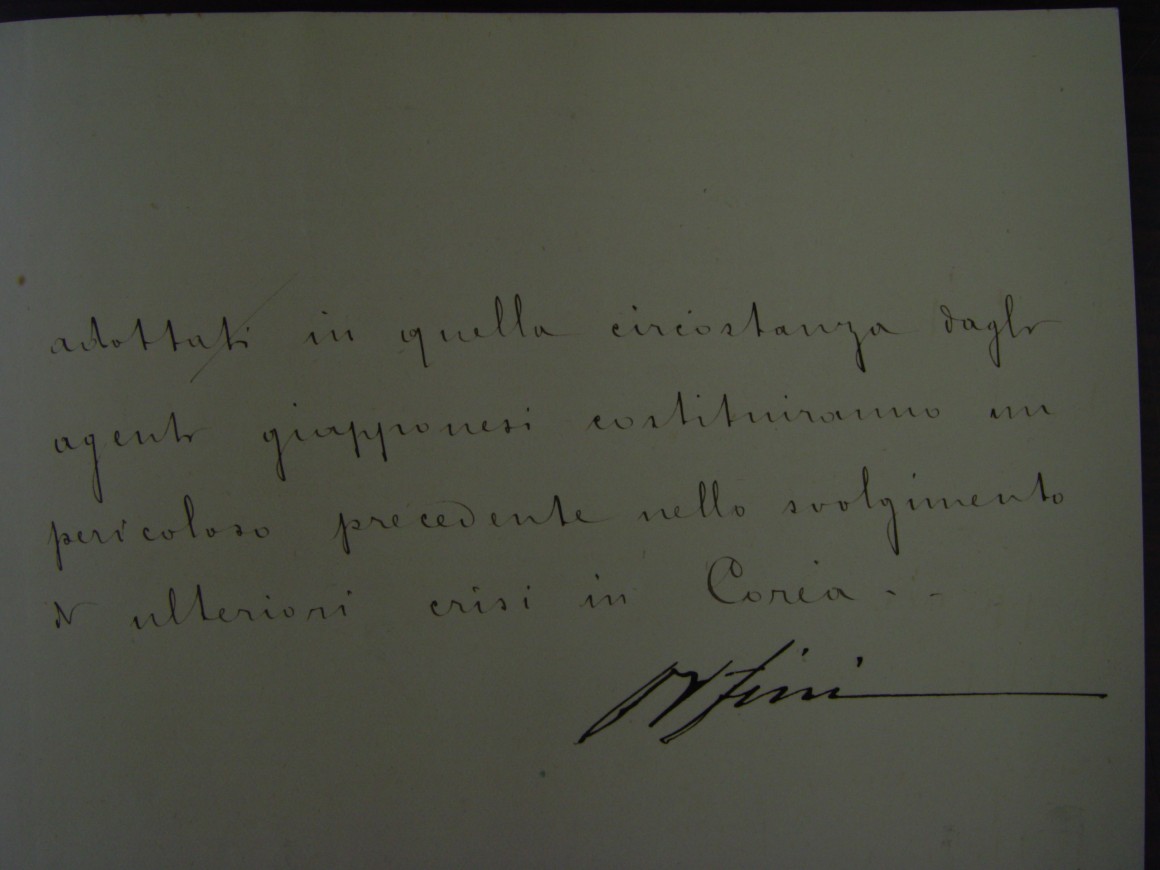 adottati in quella circostanza dagli
agenti giapponesi costituiranno un
pericoloso precedente nello svolgimento
di ulteriori crisi in Corea. -
Orfini